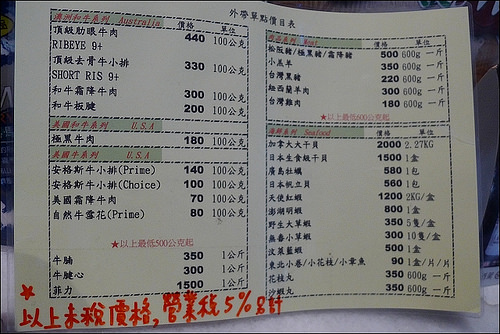 外帶單點價目表
澳洲和牛系列 Australia 價格 單位
頂級肋眼牛肉 440 100公克
RIBEYE 9+
頂級去骨牛小排 330 100公克
SHORT RIS 9+
和牛霜降牛肉 300 100公克
和牛板腱 200 100公克
美國和牛系列 U.S.A
極黑牛肉 180 100公克
美國牛系列 U.S.A
安格斯牛小排(Prime) 140 100公克
安格斯牛小排(Choice) 100 100公克
美國霜降牛肉 70 100公克
自然牛雪花(Prime) 80 100公克
★以上最低500公克起
牛腩 350 1公斤
牛腱心 300 1公斤
菲力 1500 1公斤
肉品系列 Meat 價格 單位
松阪豬/極黑豬/霜降豬 500 600g 一斤
小羔羊 350 600g 一斤
台灣黑豬 220 600g 一斤
紐西蘭羊肉 300 600g 一斤
台灣雞肉 180 600g 一斤
★以上最低600公克起
海鮮系列 Seafood 價格 單位
加拿大大干貝 2000 2.27KG
日本生食級干貝 1500 1盒
廣島牡蠣 580 1包
日本帆立貝 560 1包
天使紅蝦 1200 2KG/盒
澎湖明蝦 800 1盒
野生大草蝦 350 5隻/盒
無毒小草蝦 300 10隻/盒
汶萊藍蝦 500 1盒
東北小卷/小花枝/小章魚 90 1盒/片/片
花枝丸 350 600g 一斤
沙蝦丸 350 600g 一斤
★
以上未稅價格,營業稅5%另計